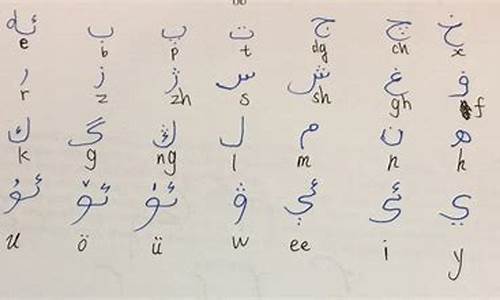 ئە ب پ ت ج چ خ
e b p t dg ch x
ر ز ژ س ش غ ف
r z zh s sh gh f
ك گ ڭ ل م ن ھ
k g ng l m n h
ئۇ ئۆ ئۈ ۋ ئې ئى ي
u ö ü w ee i y